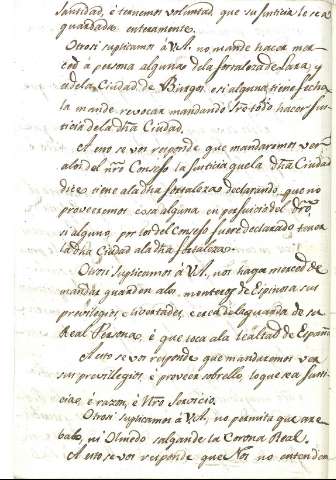 Santidad, é tenemos voluntad, que su Justicia le sea
guardada enteramente.
Otrosi suplicamos á V.A. no mande hacer mer-
ced á persona alguna dela fortaleza de Lara, y
dela Ciudad, de Burgos, e si alguna tiene fecha
la mande revocar mandando sobre todo hacer Jus-
ticia dela dha Ciudad.
A esto se vos responde que mandaremos ver
alos del nro Consejo la Justicia quela dha Ciudad
dice, tiene ala dha fortaleza declarando, que no
proveeremos cosa alguna en perjuicio del dro,
si alguno, por los del Consejo fuere declarado tener
la dha Ciudad ala dha fortaleza.
Otrosi suplicamos á V.A. nos haga merced de
mandar guarden alos monteros de Espinosa sus
previlegios, e livertades, e cerca dela guarda de su
Real Persona, é que toca ala lealtad de España
A esto se vos responde que mandaremos ver
sus previlegios, é proveer sobrello, lo que sea Justi-
cia, é razon, é Nro Servicio.
Otrosi suplicamos á V.A., no permita que are-
balo, ni Olmedo salgan de la Corona Real.
A esto se vos responde que Nos no entendien-